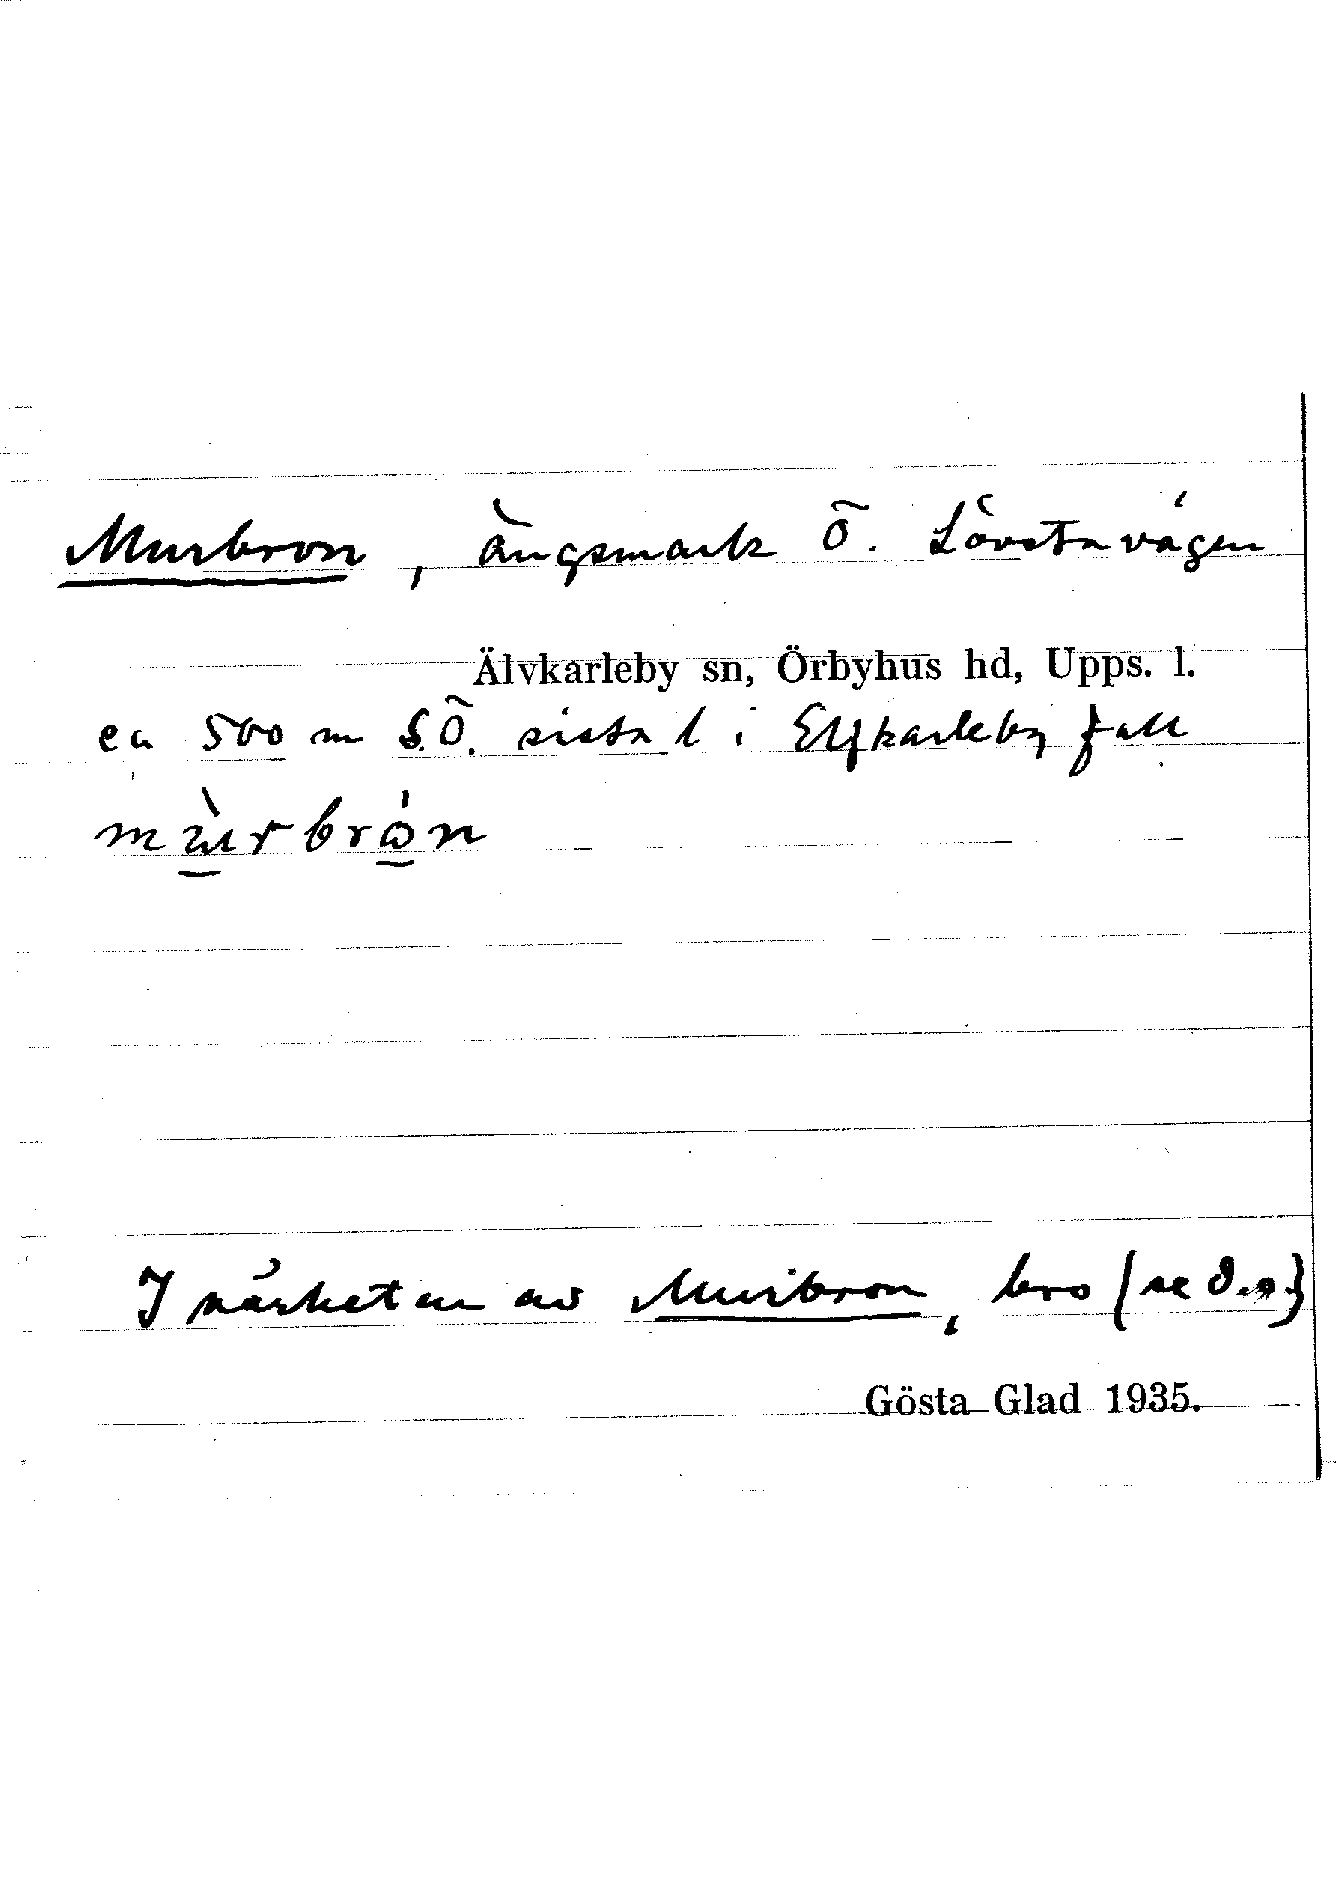 Murbron, ängsmark Ö. Lövstavägen
Älvkarleby sn, Örbyhus hd, Upps. l.
ca 500 m S.Ö. sista l i Elfkarleby fall
mùrbrón
I närheten av Murbron, bro (se d.o.)
Gösta Glad 1935.